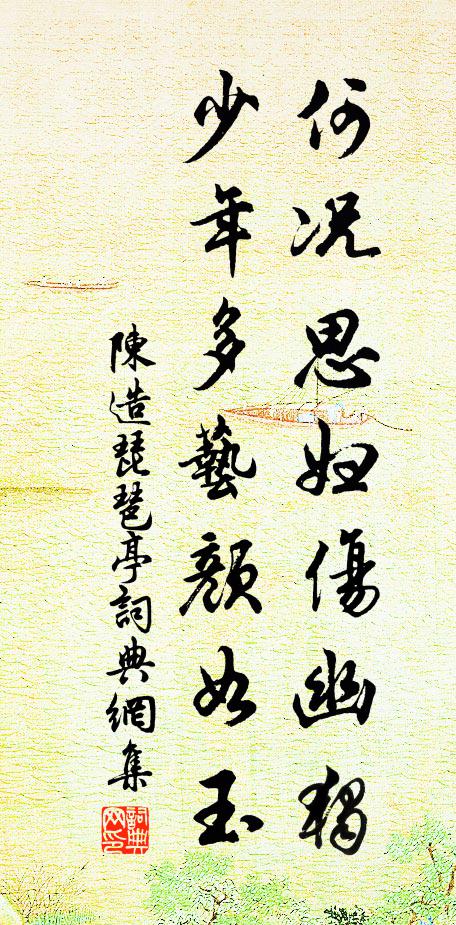 何況思婦傷幽獨
少年多藝顏如玉
陳造琵琶亭詞典網集
詞典
网印